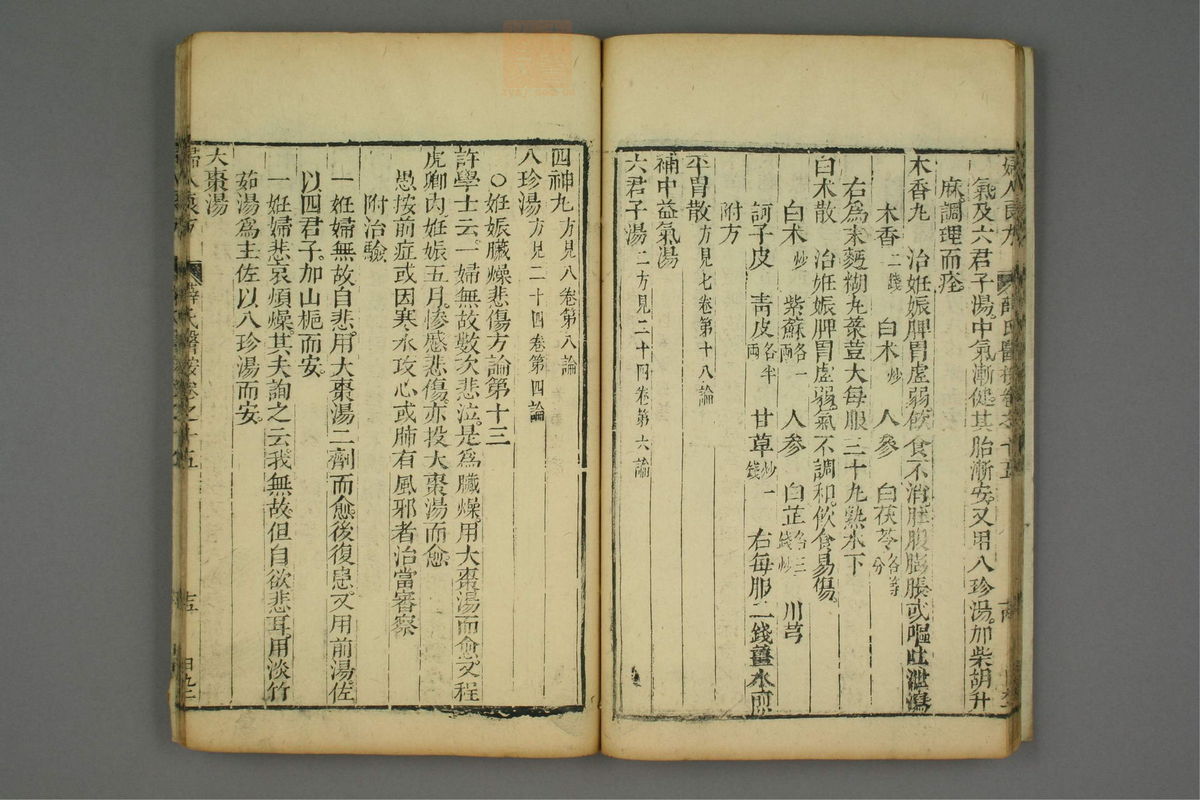 氣及六君子湯中氣漸健其胎漸安又用八珍湯加柴胡升
麻調理而痊
木香丸　治妊娠脾胃虛弱飲食不消肚腹膨脹或嘔吐泄瀉
木香二錢　白朮炒　人參　白茯苓各等分
右爲末麪糊丸菉荳大每服三十丸熟水下
白朮散　治妊娠脾胃虛弱氣不調和飲食易傷
白朮炒　紫蘇各一兩　人參　白芷各三錢炒　川芎
訶子皮　靑皮各半兩　甘草炒一錢　右每服二錢薑水煎
附方
平胃散方見七卷第十八論
補中益氣湯
六君子湯二方見二十四卷第六論
四神丸方見八卷第八論
八珍湯方見二十四卷第四論
○妊娠臟燥悲傷方論第十三
許學士云一婦無故數次悲泣是爲臟燥用大棗湯而愈又程
虎卿內妊娠五月慘慼悲傷亦投大棗湯而愈
愚按前症或因寒水攻心或肺有風邪者治當審察
附治驗
一妊婦無故自悲用大棗湯二劑而愈後復患又用前湯佐
以四君子加山梔而安
一妊婦悲哀煩燥其夫詢之云我無故但自欲悲耳用淡竹
茹湯爲主佐以八珍湯而安
大棗湯
薛氏醫按卷之十五